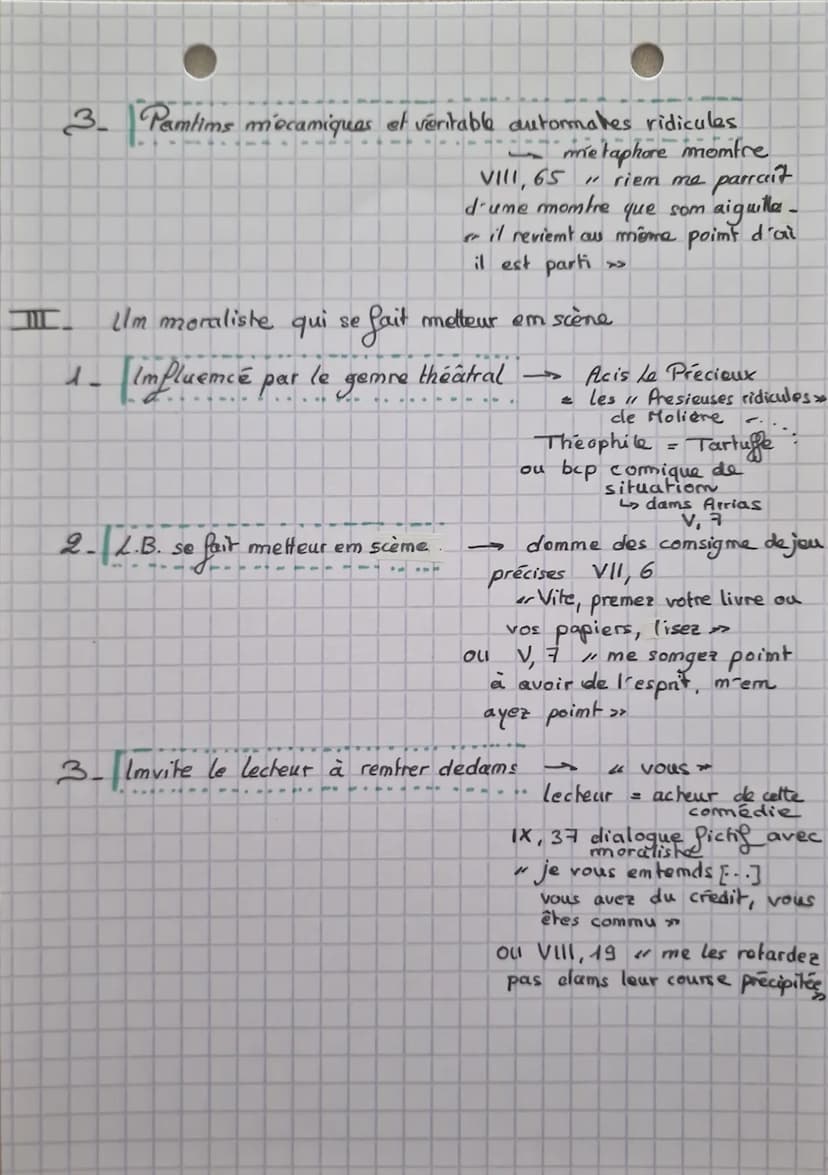 3- Pantins mécaniques et véritable automates ridicules
→ métaphore montre
VIII, 65 " rien ne parrait
d'une montre que son aiguille -
" il revient au même point d'où
il est parti »
III- Un moraliste qui se fait metteur en scène
1- Influencé par le genre théâtral → Acis le Précieux
= les " Presieuses ridicules »
de Molière
Théophile = Tartuffe
ou bcp comique de
situation
↳ dans Arrias
V, 7
2- L.B. se fait metteur en scène → donne des consigne de jeu
précises VII, 6
" Vite, prenez votre livre ou
vos papiers, lisez »
ou V, 7 " ne songez point
à avoir de l'esprit, n'en
ayez point »
3- Invite le lecteur à rentrer dedans → « vous »
lecteur = acteur de cette
comédie
IX, 37 dialogue fictif avec
moraliste
" je vous entends [...]
vous avez du crédit, vous
êtes connu »
ou VIII, 19 « ne les retardez
pas dans leur course précipitée »